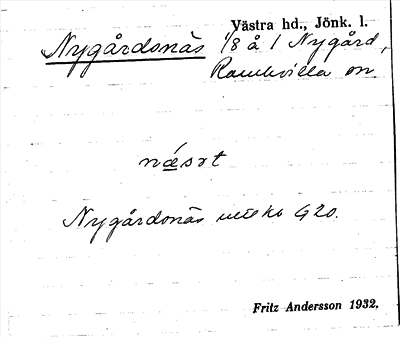 Västra hd., Jönk. l.
Nygårdsnäs 1/8 å 1 Nygård,
Ramkvilla sn
næsrt
Nygårdsnäs G20.
Fritz Andersson 1932.